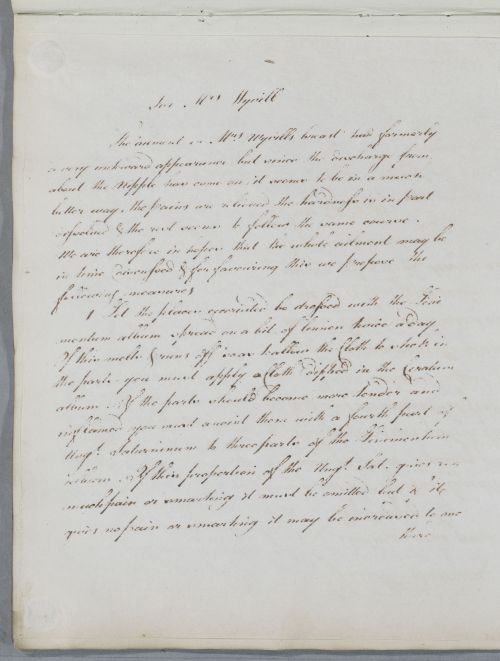 For Mrs Wyvill
The ailment in Mrs Wyvills breast had formerly
a very awkward appearance but since the discharge from
about the Nipple has come on, it seems to be in a much
better way. the pains are relieved the hardness is in part
dissolved & the rest seems to follow the same course.
We are therefore in hopes that the whole ailment may be
in time discussed & for favouring this we propose the
following measures
1 Let the places excoriated be dressed with the Lini
mentum album spread on a bit of linnen twice a day
If this melts & runs off so as to allow the Cloth to stick to
the parts you must apply a Cloth dipped in the Ceratum
album. If the parts should become more tender and
inflamed you must anoint those with a fourth part of
Ungt. Saturninum to three parts of the Linimentum
album. If this proportion of the Ungt. Sat. gives
much pain or smarting it must be omitted but if it
gives no pain or smarting it may be increased to one